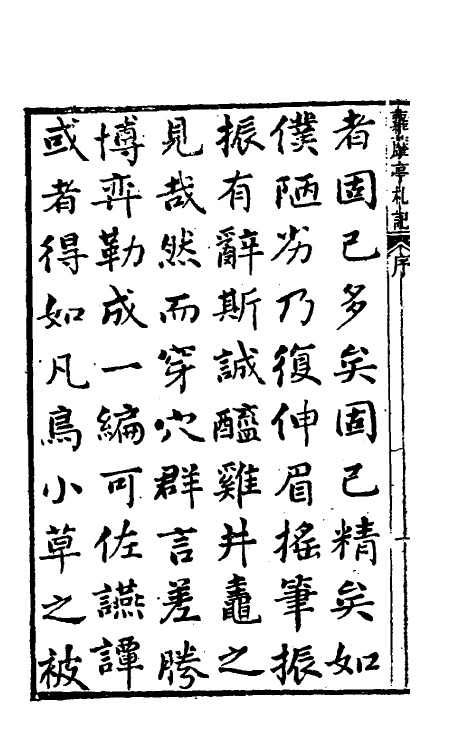 蘿藦亭札記
序
者固已多矣固已精矣如
僕陋劣乃復伸眉搖筆振
振有辭斯誠醯雞井鼃之
見哉然而穿穴群言差勝
博弈勒成一編可佐讌譚
或者得如凡鳥小草之被